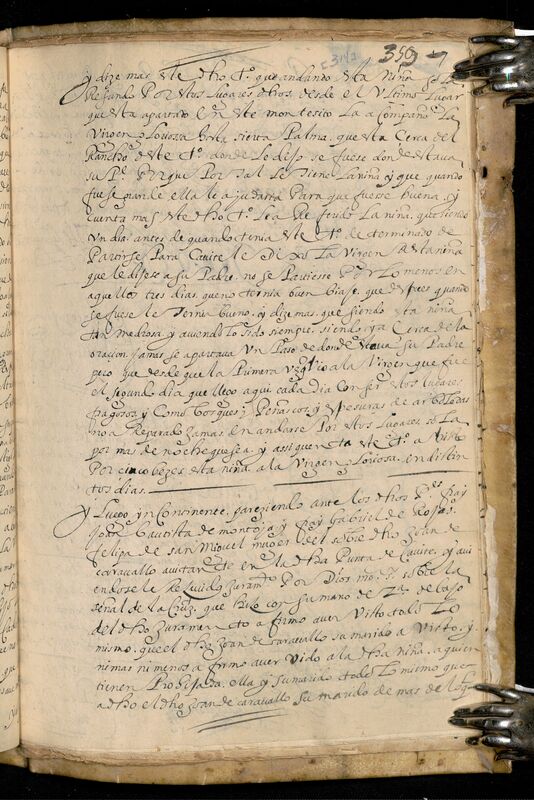 359
y dize mas este dho t.º que andando esta niña sola
Resando Por estos lugares otros, desde el Vltimo lugar
que esta apartado en este montesito la acompaño la
Virgen gloriossa hasta sierta Palma, que esta Cerca del
Rancho deste t.º donde le dijo se fuese donde estaua
su P.e Porque Por tal le tiene la niña y que quando
fuese grande ella le ajudaria Para que fuesse buena, y
cuenta mas este dho t.º le a Referido la niña, que siendo
Vn dia antes de quando tenia este t.º determinado de
Partirse Para Cauite le Dixo la Virgen a esta niña
que le dijese a su Padre no se Partiesse Por lo menos en
aquellos tres dias que no ternia buen biaje, que despues quando
se fuese le ternia bueno, y dize mas, que siendo esta niña
tan medrosa y auiendolo sido siempre, siendo ya Cerca de la
oraçion jamas se apartaua Vn Paso de donde estaua su Padre
pero que desde que la Primera vez vio a la Virgen que fue
el segundo dia que llego aqui cada dia con ser estos lugares
fragosos y Como bosques, Peñascos, y espesuras de arboledas
no a Reparado jamas en andarse Por estos lugares sola
por mas de noche que sea y assi quenta este t.º a Visto
Por cinco bezes esta niña a la Virgen gloriosa, en distin
tos dias.
y Luego yn Continente, pareziendo ante los dhos P.es fray
Joan bautista de montoja, y fray Gabriel de Rojas.
felipa de san Miguel muger del sobre dho Joan de
carauallo auitante en la dha Punta de Cauite, y aui
endosele Reciuido juram.to Por Dios nro s.r sobre la
señal de la Cruz, que hizo con su mano de R.ha debajo
del dho juramento afirmo auer Visto todo lo
mismo, que el dho Joan de carauallo su marido a Visto, y
ni mas ni menos afirmo auer oido a la dha niña, a quien
tienen Prohijada, ella y su marido todo lo mismo que
a dho el dho Joan de carauallo su marido de mas de lo q.